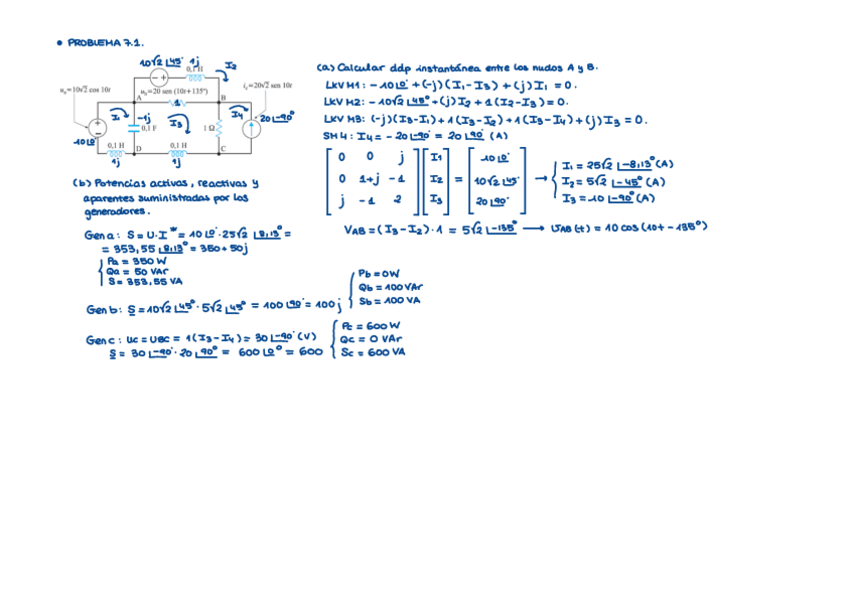 • PROBLEMA 7.1.
10√2 ∠45° 1j
0,1 H
I2
u_b=20 sen (10t+135°)
u_a=10√2 cos 10t
i_c=20√2 sen 10t
A
B
1
I1
-1j
0,1 F
I3
1 Ω
I4
20∠-90°
10∠0°
0,1 H
D
0,1 H
C
1j
1j
(a) Calcular ddp instantánea entre los nudos A y B.
LKV M1: -10∠0° + (-j)(I1-I3) + (j)I1 = 0.
LKV M2: -10√2 ∠45° + (j)I2 + 1(I2-I3) = 0.
LKV M3: (-j)(I3-I1) + 1(I3-I2) + 1(I3-I4) + (j)I3 = 0.
SM4: I4 = -20∠-90° = 20∠90° (A)
[0 0 j; 0 1+j -1; j -1 2] [I1; I2; I3] = [10∠0°; 10√2∠45°; 20∠90°] → { I1 = 25√2 ∠-8,13° (A)
I2 = 5√2 ∠-45° (A)
I3 = 10 ∠-90° (A)
VAB = (I3-I2)·1 = 5√2 ∠-135° → UAB(t) = 10 cos(10t - 135°)
(b) Potencias activas, reactivas y
aparentes suministradas por los
generadores.
Gen a: S = U·I* = 10∠0°·25√2 ∠8,13° =
= 353,55 ∠8,13° = 350 + 50j
{ Pa = 350 W
Qa = 50 VAr
S = 353,55 VA
Gen b: S = 10√2 ∠45° · 5√2 ∠45° = 100 ∠90° = 100j
{ Pb = 0W
Qb = 100 VAr
Sb = 100 VA
Gen c: Uc = UBC = 1(I3-I4) = 30∠-90° (V)
S = 30∠-90° · 20∠90° = 600∠0° = 600
{ Pc = 600 W
Qc = 0 VAr
Sc = 600 VA